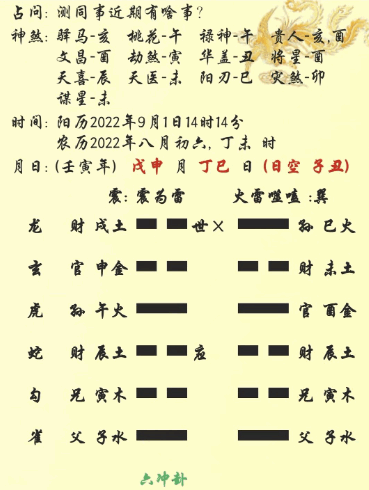 占问：测同事近期有啥事？
神煞：驿马-亥 桃花-午 禄神-午 贵人-亥,酉
文昌-酉 劫煞-寅 华盖-丑 将星-酉
天喜-辰 天医-未 阳刃-巳 灾煞-卯
谋星-未
时间：阳历2022年9月1日14时14分
农历2022年八月初六，丁未 时
月日：(壬寅年) 戊申 月 丁巳 日 (日空 子丑)
震：震为雷 火雷噬嗑：巽
龙 财 戌土 世× 孙 巳火
玄 官 申金 财 未土
虎 孙 午火 官 酉金
蛇 财 辰土 应 财 辰土
勾 兄 寅木 兄 寅木
雀 父 子水 父 子水
六冲卦